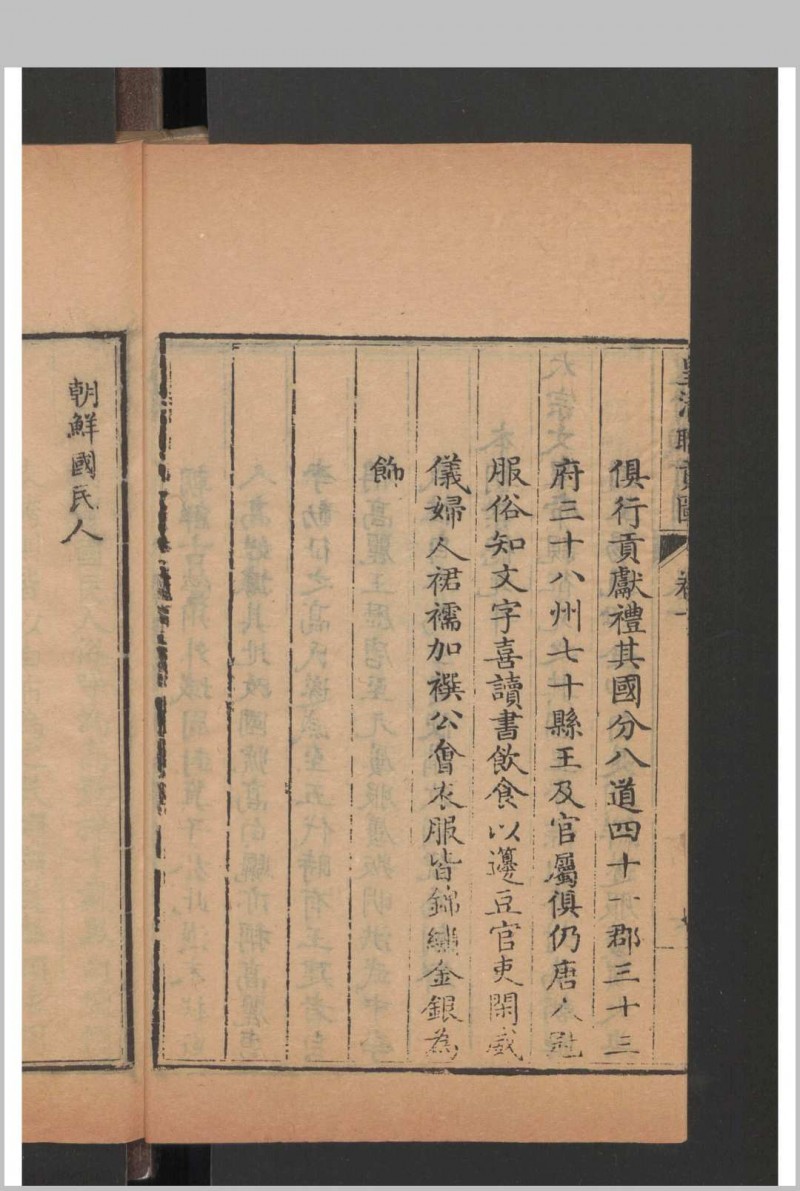 皇清職貢圖 卷一
俱行貢獻禮其國分八道四十一郡三十三
府三十八州七十縣王及官屬俱仍唐人冠
服俗知文字喜讀書飲食以籩豆官吏閑威
儀婦人裙襦加襈公會衣服皆錦繡金銀為
飾
朝鮮國民人